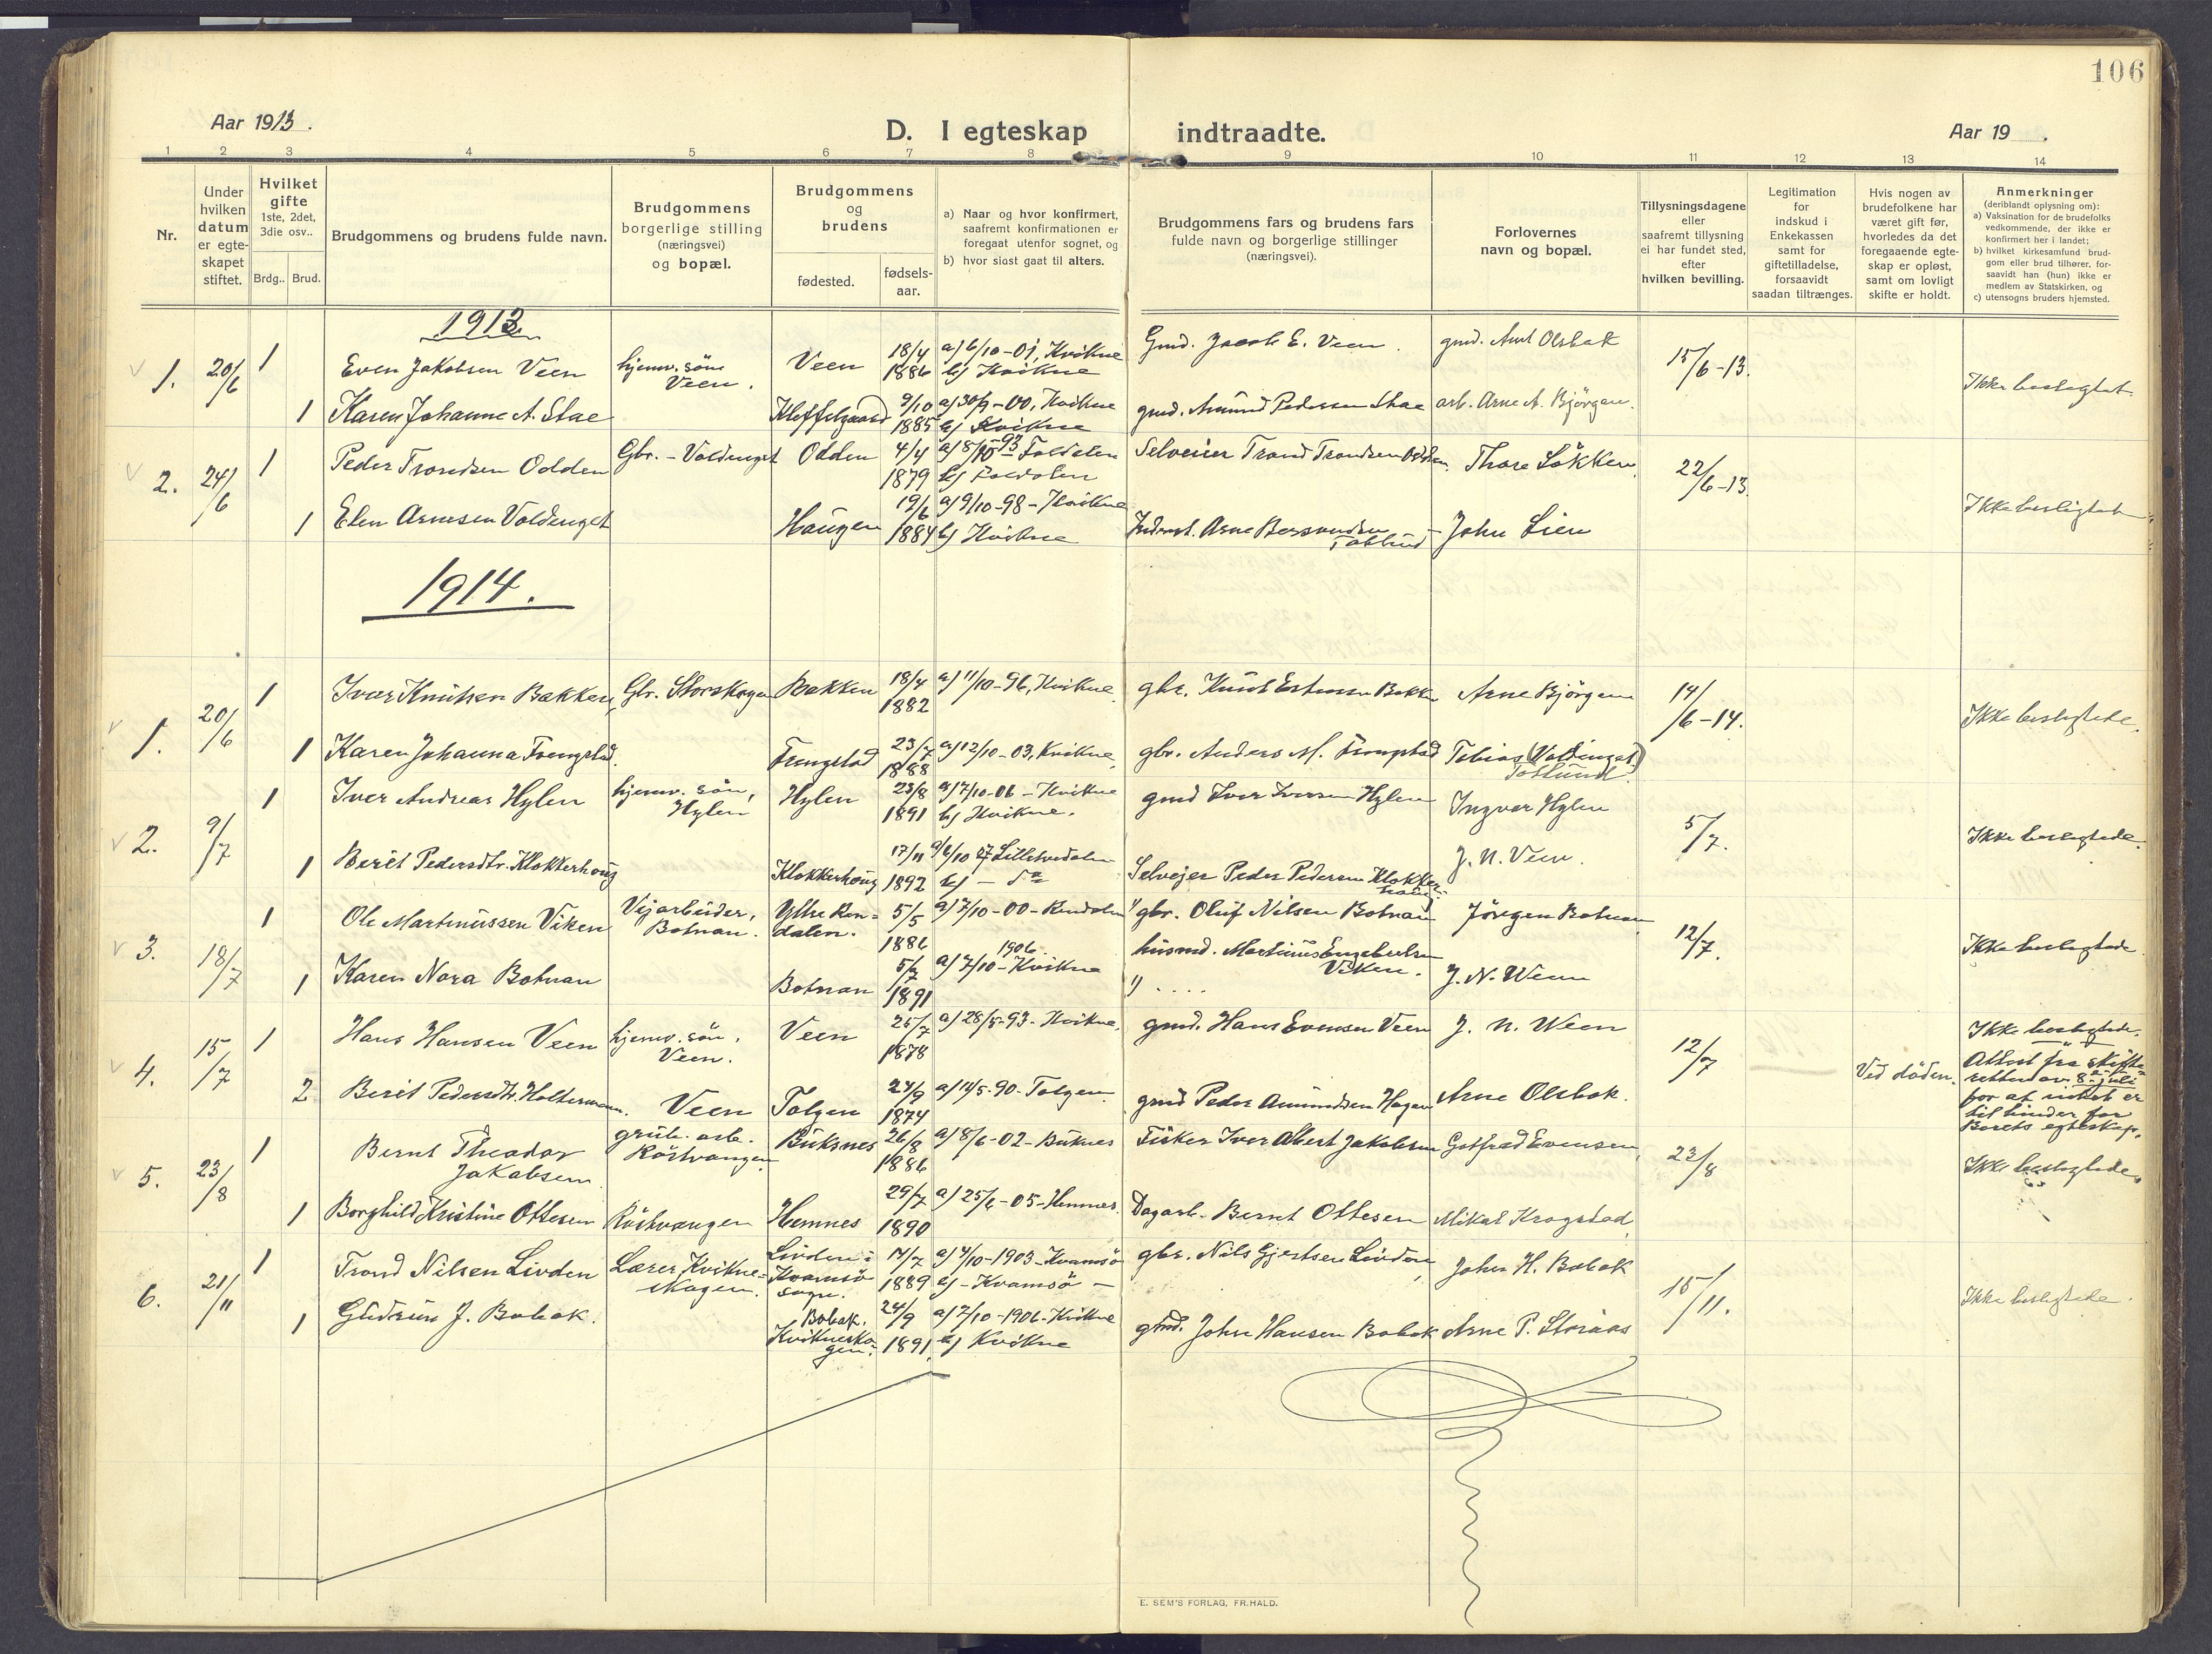 106
Aar 1913.
D. I egteskap indtraadte.
Aar 19 .
1 2 3 4 5 6 7 8 9 10 11 12 13 14
Nr.
Under hvilken datum er egte-skapet stiftet.
Hvilket gifte 1ste, 2det, 3die osv..
Brdg.. Brud.
Brudgommens og brudens fulde navn.
Brudgommens borgerlige stilling (næringsvei) og bopæl.
Brudgommens og brudens
fødested.
fødsels-aar.
a) Naar og hvor konfirmert, saafremt konfirmationen er foregaaet utenfor sognet, og
b) hvor sidst gaat til alters.
Brudgommens fars og brudens fars fulde navn og borgerlige stillinger (næringsvei).
Forlovernes navn og bopæl.
Tillysningsdagene eller saafremt tillysning ei har fundet sted, efter hvilken bevilling.
Legitimation for indskud i Enkekassen samt for giftetilladelse, forsaavidt saadan tiltrænges.
Hvis nogen av brudefolkene har været gift før, hvorledes da det foregaaende egte-skap er opløst, samt om lovligt skifte er holdt.
Anmerkninger (deriblandt oplysning om):
a) Vaksination for de brudefolks vedkommende, der ikke er konfirmert her i landet;
b) hvilket kirkesamfund brud-gom eller brud tilhører, for-saavidt han (hun) ikke er medlem av Statskirken, og
c) utensogns bruders hjemsted.
1913
1. 20/6 1 Even Jakobsen Veen hjemv. søn Veen. Veen 18/4 1886 a) 6/10-01, Kvikne b) Kvikne Gmd. Jacob E. Veen. gmd. Arnt Olsbak 15/6-13. Ikke beslegtet
1 Karen Johanne A. Stae 9/10 1885 a) 30/9-00, Kvikne b) Kvikne gmd. Amund Pedersen Stae arb. Arne A. Bjørgen.
2. 24/6 1 Peder Trondsen Odden Gbr. - Voldenget Odden 4/4 1879 a) 8/10-93 Foldalen b) Foldalen Selveier Trond Trondsen Odden. Thore Løkken 22/6-13 Ikke besligtet
1 Elen Arnesen Voldenget Haugen 19/6 1884 a) 9/10-98 - Kvikne b) Kvikne Arne - John Lien
1914.
1. 20/6 1 Ivar Knutsen Bakken, Gbr. Storskogen Bakken 18/4 1882 a) 11/10-96, Kvikne. gbr. Knut Estensen Bakk Arne Bjørgen 14/6-14. Ikke besligtede.
1 Karen Johanna Frengstad. Frengstad 23/7 1888 a) 12/10-03, Kvikne. gbr. Anders M. Frengstad Tobias (Voldenget)
2. 9/7 1 Iver Andreas Hylen hjemv. søn, Hylen Hylen 23/8 1891 a) 7/10-06 - Kvikne b) Kvikne. gmd Iver Iversen Hylen Ingvar Hylen 5/7. Ikke besligtede.
1 Berit Pedersdtr. Klokkerhoug Klokkerhoug 17/11 1892 b) - Selvejer Peder Pedersen Klokkerhoug. J. N. Veen.
3. 18/7 1 Ole Martinussen Viken Vejarbeider, Botnan. Ytre Ren-dalen. 5/5 1886 a) 7/10-00-Rendalen " gbr. Oluf Nilsen Botnan Jørgen Botnan 12/7. Ikke besligtede.
husmd. Martinus Engebretsen Viken.
1 Karen Nora Botnan Botnan 5/7 1891 a) 7/10-1906 Kvikne " .... J. N. Ween
4. 15/7 1 Hans Hansen Veen hjemv. søn, Veen. Veen 25/7 1878 a) 28/5-93 - Kvikne. gmd. Hans Evensen Veen J. N. Ween 12/7 Ikke besligtede.
2 Berit Pedersdtr. Holtermann. Veen Tolgen 24/9 1874 a) 14/5-90-Tolgen. gmd Peder Amundsen Hagen Arne Olsbak. Ved døden. Attest fra skifte-retten av 8. juli for at intet er til hinder for Berets egteskap.
5. 23/8 1 Bernt Theodor Jakobsen grub. arb. Røstvangen. Buksnes 26/8 1886 a) 8/6-02-Buksnes Fisker Iver Albert Jakobsen Gotfred Evensen, 23/8 Ikke besligtede.
1 Borghild Kristine Ottesen Røstvangen Hemnes 29/7 1890 a) 25/6-05-Hemnes. Dagarb. Bernt Ottesen Mikal Krogstad,
6. 21/11 1 Trond Nilsen Livden Lærer, Kvikne-skogen. Livden i Kvamsø sogn. 14/7 1889 a) 4/10-1903-Kvamsø b) -Kvamsø- gbr. Nils Gjertsen Livden, John H. Bobak 15/11. Ikke besligtede.
1 Gudrun J. Bobak. Bobak, Kvikneskogen. 24/9 1891. a) 7/10-1906-Kvikne b) Kvikne gmd. John Hansen Bobak Arne P. Storaas
E. SEM'S FORLAG, FR.HALD.